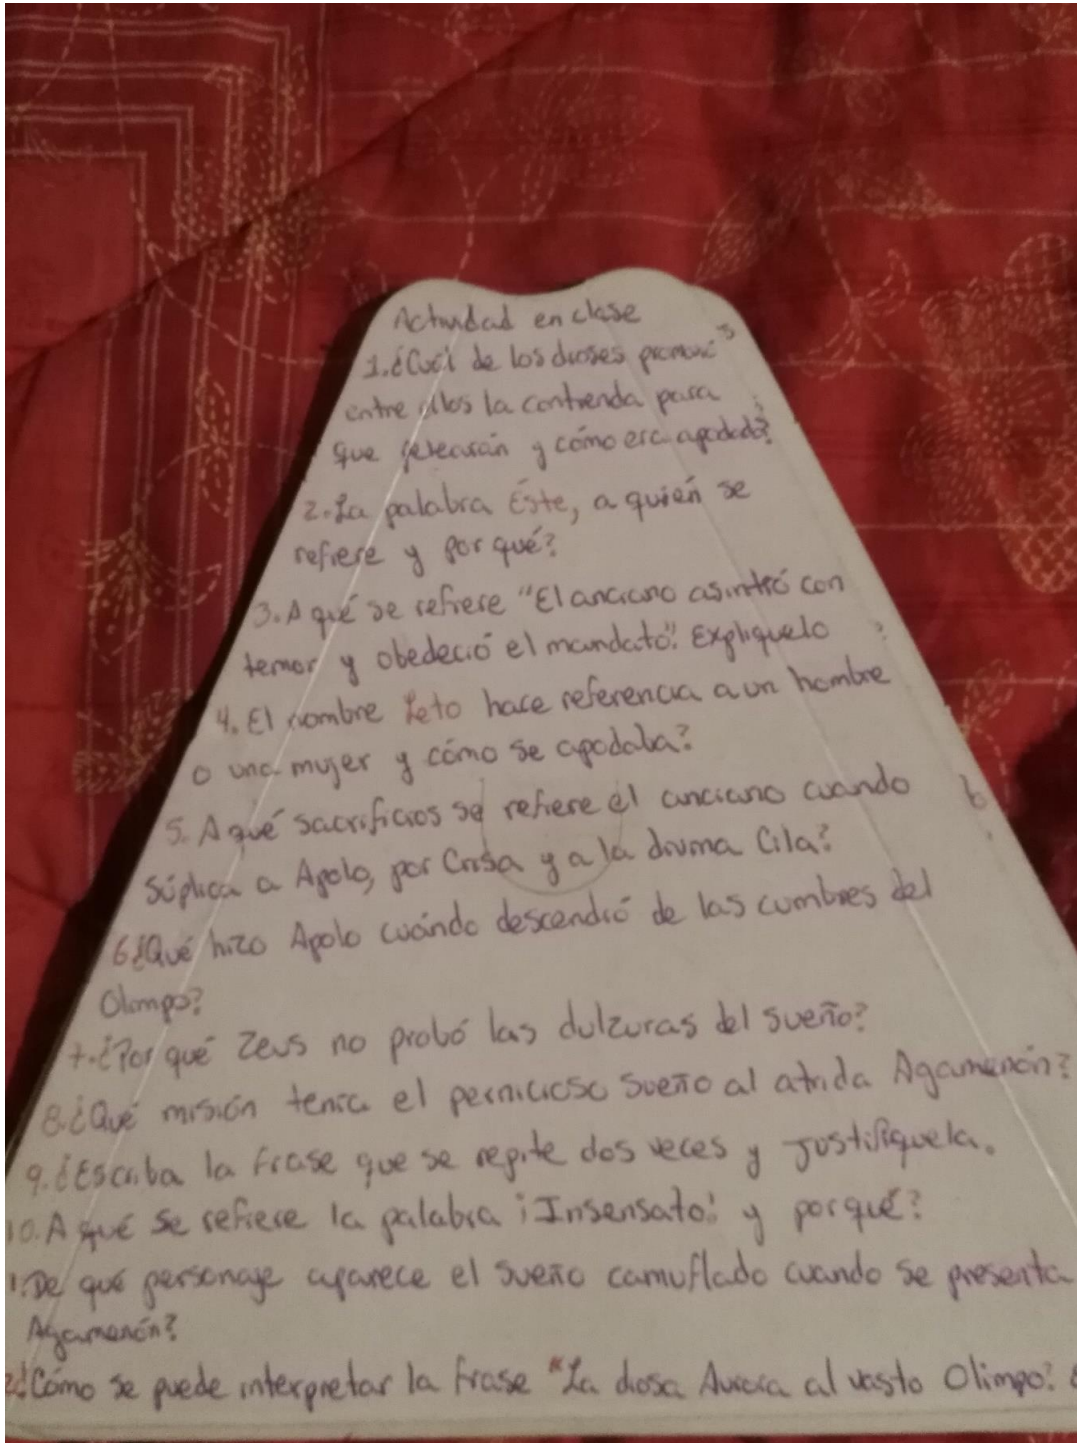 Actividad en clase
1. ¿Cuál de los dioses promovió
entre ellos la contienda para
que pelearán y cómo era apodado?
2. La palabra Éste, a quién se
refiere y por qué?
3. A qué se refiere "El anciano asintió con
temor y obedeció el mandato". Expliquelo
4. El nombre Leto hace referencia a un hombre
o una mujer y cómo se apodaba?
5. A qué sacrificios se refiere el anciano cuando
súplica a Apolo, por Crisa y a la divina Cila?
6 ¿Qué hizo Apolo cuándo descendió de las cumbres del
Olimpo?
7. ¿Por qué Zeus no probó las dulzuras del sueño?
8. ¿Qué misión tenía el pernicioso sueño al atrida Agamenón?
9. ¿Escriba la frase que se repite dos veces y Justifiquela.
10. A qué se refiere la palabra ¡Insensato! y porqué?
1. De qué personaje aparece el sueño camuflado cuando se presenta
Agamenón?
2 ¿Cómo se puede interpretar la frase "La diosa Aurora al vasto Olimpo?